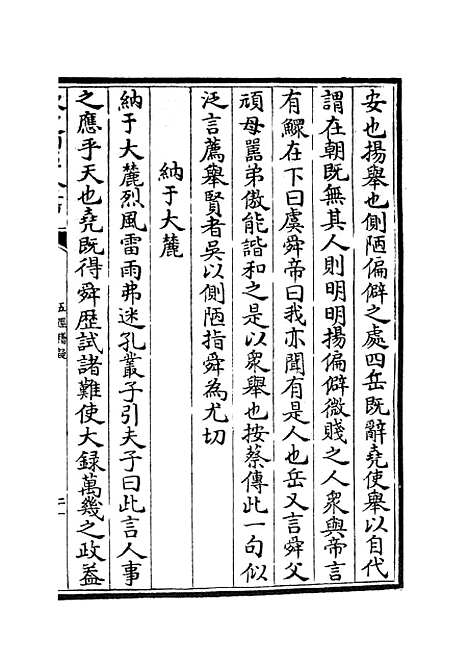 安也揚舉也側陋偏僻之處四岳既辭堯使舉以自代
謂在朝既無其人則明明揚偏僻微賤之人衆與帝言
有鰥在下曰虞舜帝曰我亦聞有是人也岳又言舜父
頑母嚚弟傲能諧和之是以衆舉也按蔡傳此一句似
泛言薦舉賢者吳以側陋指舜為尤切
納于大麓
納于大麓烈風雷雨弗迷孔叢子引夫子曰此言人事
之應乎天也堯既得舜歴試諸難使大録萬幾之政葢
五經蠡